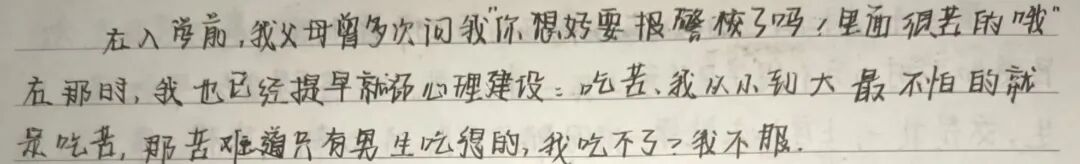 在入学前,我父母曾多次问我"你想好要报警校了吗,里面很苦的哦"
在那时,我也已经提早就话心理建设:吃苦、我从小到大最不怕的就
是吃苦,那苦难道只有男生吃得的,我吃不了?我不服.